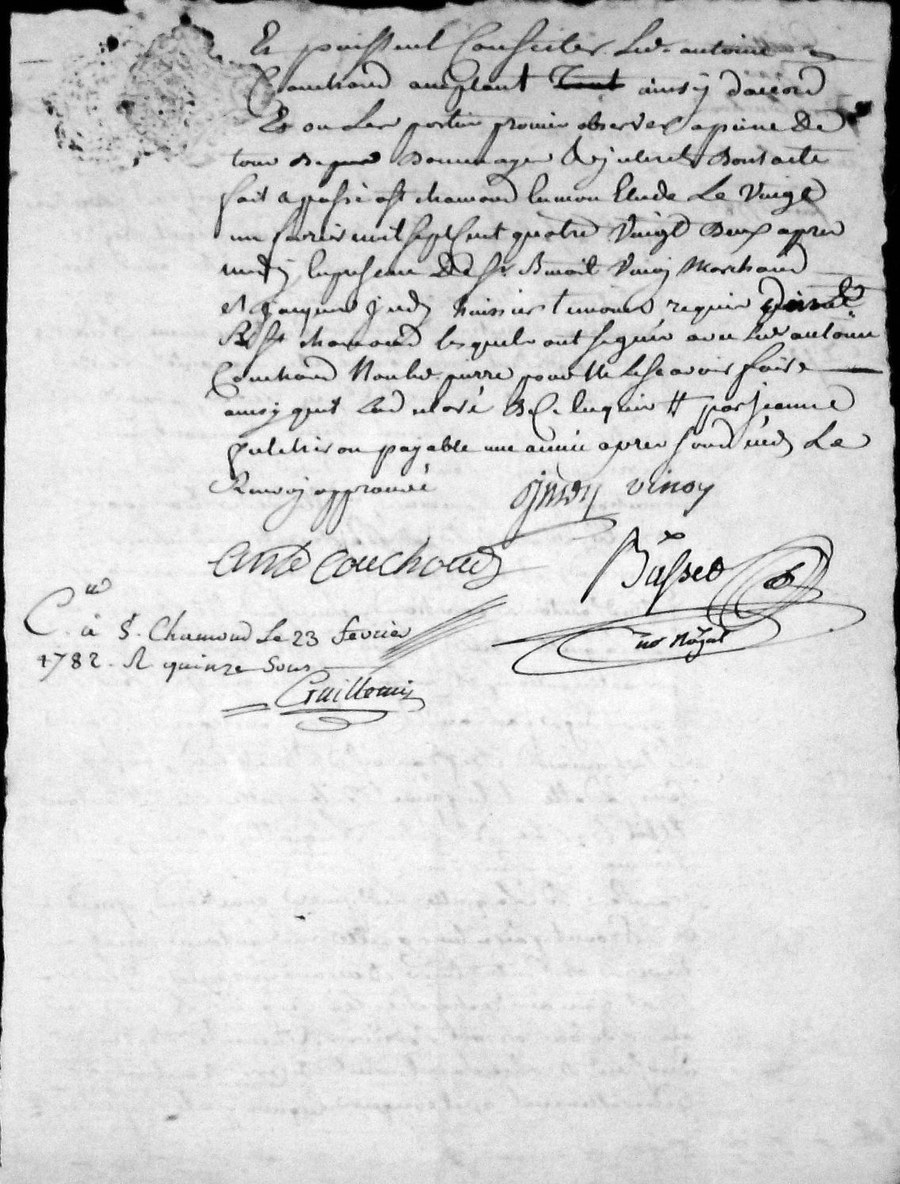 Et puissent Consister led. antoine
Couchoud acceptant Tout ainsy d'accord
Et ont Les parties promis observer a peine de
tous depens Dommages & interets Dont acte
fait & passé a St. chamond en mon Etude Le Vingt
un fevrier mil sept cent quatre Vingt Deux apres
midy en presence de Sr. Benoit Vinoy Marchand
et Jacques judy huissier temoins requis
De St. chamond lesquels ont signés avec led. antoine
Couchoud Non led. pierre pour ne le scavoir faire
ainsy qu'il l'a declaré De Ce enquis # par jeanne
payable une année apres son deces Le
Renvoy approuvé
judy Vinoy
ante Couchoud
Basset
no Royal
C.lé à St. Chamond Le 23 fevrier
1782. R quinze sous
Guillemin